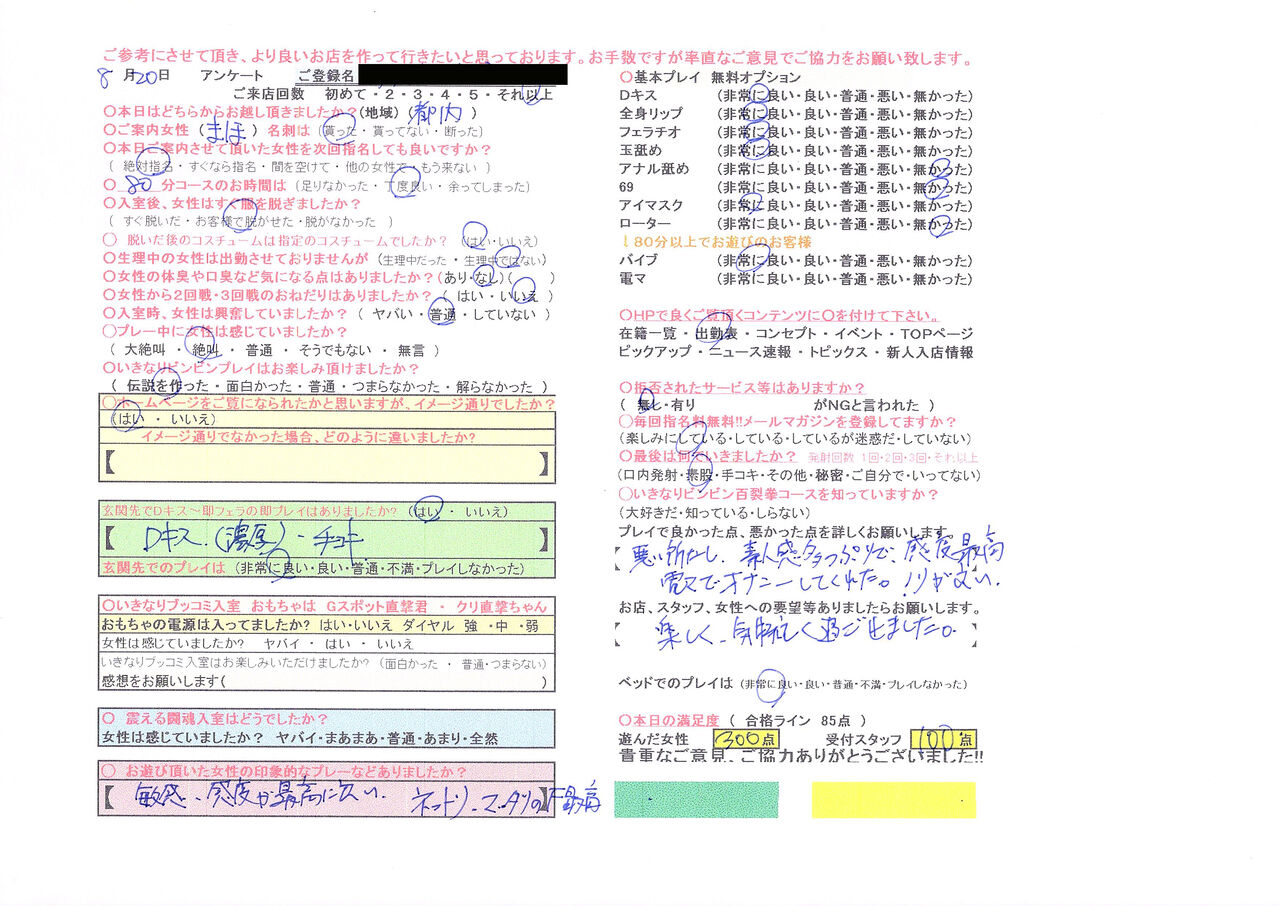 ご参考にさせて頂き、より良いお店を作って行きたいと思っております。お手数ですが率直なご意見でご協力をお願い致します。
8月20日 アンケート ご登録名
ご来店回数 初めて・2・3・4・5・それ以上
〇本日はどちらからお越し頂きましたか?(地域)(都内)
〇ご案内女性(まほ)名刺は(貰った・貰ってない・断った)
〇本日ご案内させて頂いた女性を次回指名しても良いですか?
(絶対指名・すぐなら指名・間を空けて・他の女性で・もう来ない)
〇80分コースのお時間は(足りなかった・丁度良い・余ってしまった)
〇入室後、女性はすぐ服を脱ぎましたか?
(すぐ脱いだ・お客様で脱がせた・脱がなかった)
〇 脱いだ後のコスチュームは指定のコスチュームでしたか?(はい・いいえ)
〇生理中の女性は出勤させておりませんが(生理中だった・生理中ではない)
〇女性の体臭や口臭など気になる点はありましたか?(あり・なし)( )
〇女性から2回戦・3回戦のおねだりはありましたか?(はい・いいえ)
〇入室時、女性は興奮していましたか?(ヤバい・普通・していない)
〇プレー中に女性は感じていましたか?
(大絶叫・絶叫・普通・そうでもない・無言)
〇いきなりビンビンプレイはお楽しみ頂けましたか?
(伝説を作った・面白かった・普通・つまらなかった・解らなかった)
〇ホームページをご覧になられたかと思いますが、イメージ通りでしたか?
(はい・いいえ)
イメージ通りでなかった場合、どのように違いましたか?
【 】
玄関先でDキス~即フェラの即プレイはありましたか?(はい・いいえ)
【 Dキス.(濃厚)・手コキ 】
玄関先でのプレイは(非常に良い・良い・普通・不満・プレイしなかった)
〇いきなりブッコミ入室 おもちゃは Gスポット直撃君・クリ直撃ちゃん
おもちゃの電源は入ってましたか? はい・いいえ ダイヤル 強・中・弱
女性は感じていましたか? ヤバイ・はい・いいえ
いきなりブッコミ入室はお楽しみいただけましたか?(面白かった・普通・つまらない)
感想をお願いします( )
〇 震える闘魂入室はどうでしたか?
女性は感じていましたか? ヤバイ・まあまあ・普通・あまり・全然
〇 お遊び頂いた女性の印象的なプレーなどありましたか?
【 敏感、感度が最高に良い. ネットリ、マッタリのF最高 】
〇基本プレイ 無料オプション
Dキス (非常に良い・良い・普通・悪い・無かった)
全身リップ (非常に良い・良い・普通・悪い・無かった)
フェラチオ (非常に良い・良い・普通・悪い・無かった)
玉舐め (非常に良い・良い・普通・悪い・無かった)
アナル舐め (非常に良い・良い・普通・悪い・無かった)
69 (非常に良い・良い・普通・悪い・無かった)
アイマスク (非常に良い・良い・普通・悪い・無かった)
ローター (非常に良い・良い・普通・悪い・無かった)
↓80分以上でお遊びのお客様
バイブ (非常に良い・良い・普通・悪い・無かった)
電マ (非常に良い・良い・普通・悪い・無かった)
〇HPで良くご覧頂くコンテンツに〇を付けて下さい。
在籍一覧・出勤表・コンセプト・イベント・TOPページ
ピックアップ・ニュース速報・トピックス・新人入店情報
〇拒否されたサービス等はありますか?
(無し・有り がNGと言われた)
〇毎回指名料無料!!メールマガジンを登録してますか?
(楽しみにしている・している・しているが迷惑だ・していない)
〇最後は何でいきましたか? 発射回数 1回・2回・3回・それ以上
(口内発射・素股・手コキ・その他・秘密・ご自分で・いってない)
〇いきなりビンビン百裂拳コースを知っていますか?
(大好きだ・知っている・しらない)
プレイで良かった点、悪かった点を詳しくお願いします。
【 悪い所なし. 素人感タップリで、感度最高
電マでオナニーしてくれた。ノリが良い. 】
お店、スタッフ、女性への要望等ありましたらお願いします。
【 楽しく、気持良く過ごせました。 】
ベッドでのプレイは(非常に良い・良い・普通・不満・プレイしなかった)
〇本日の満足度(合格ライン 85点)
遊んだ女性 300点 受付スタッフ 100点
貴重なご意見、ご協力ありがとうございました!!